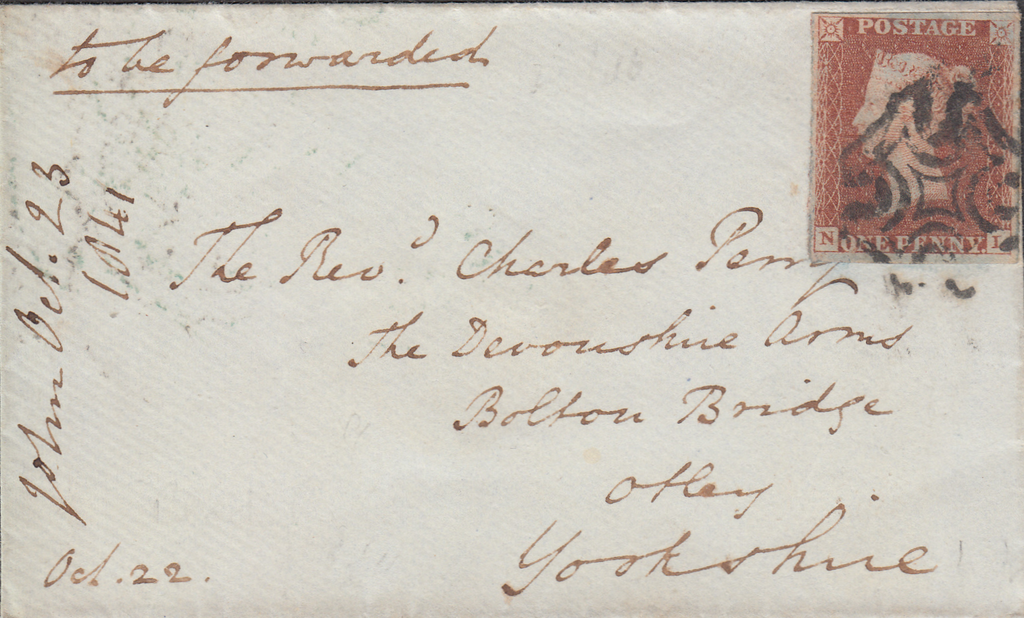 to be forwarded
POSTAGE
ONE PENNY.
N I
The Revd. Charles Perry
The Devonshire Arms
Bolton Bridge
Otley
Yorkshire
Oct. 22.
John Oct. 23
1841